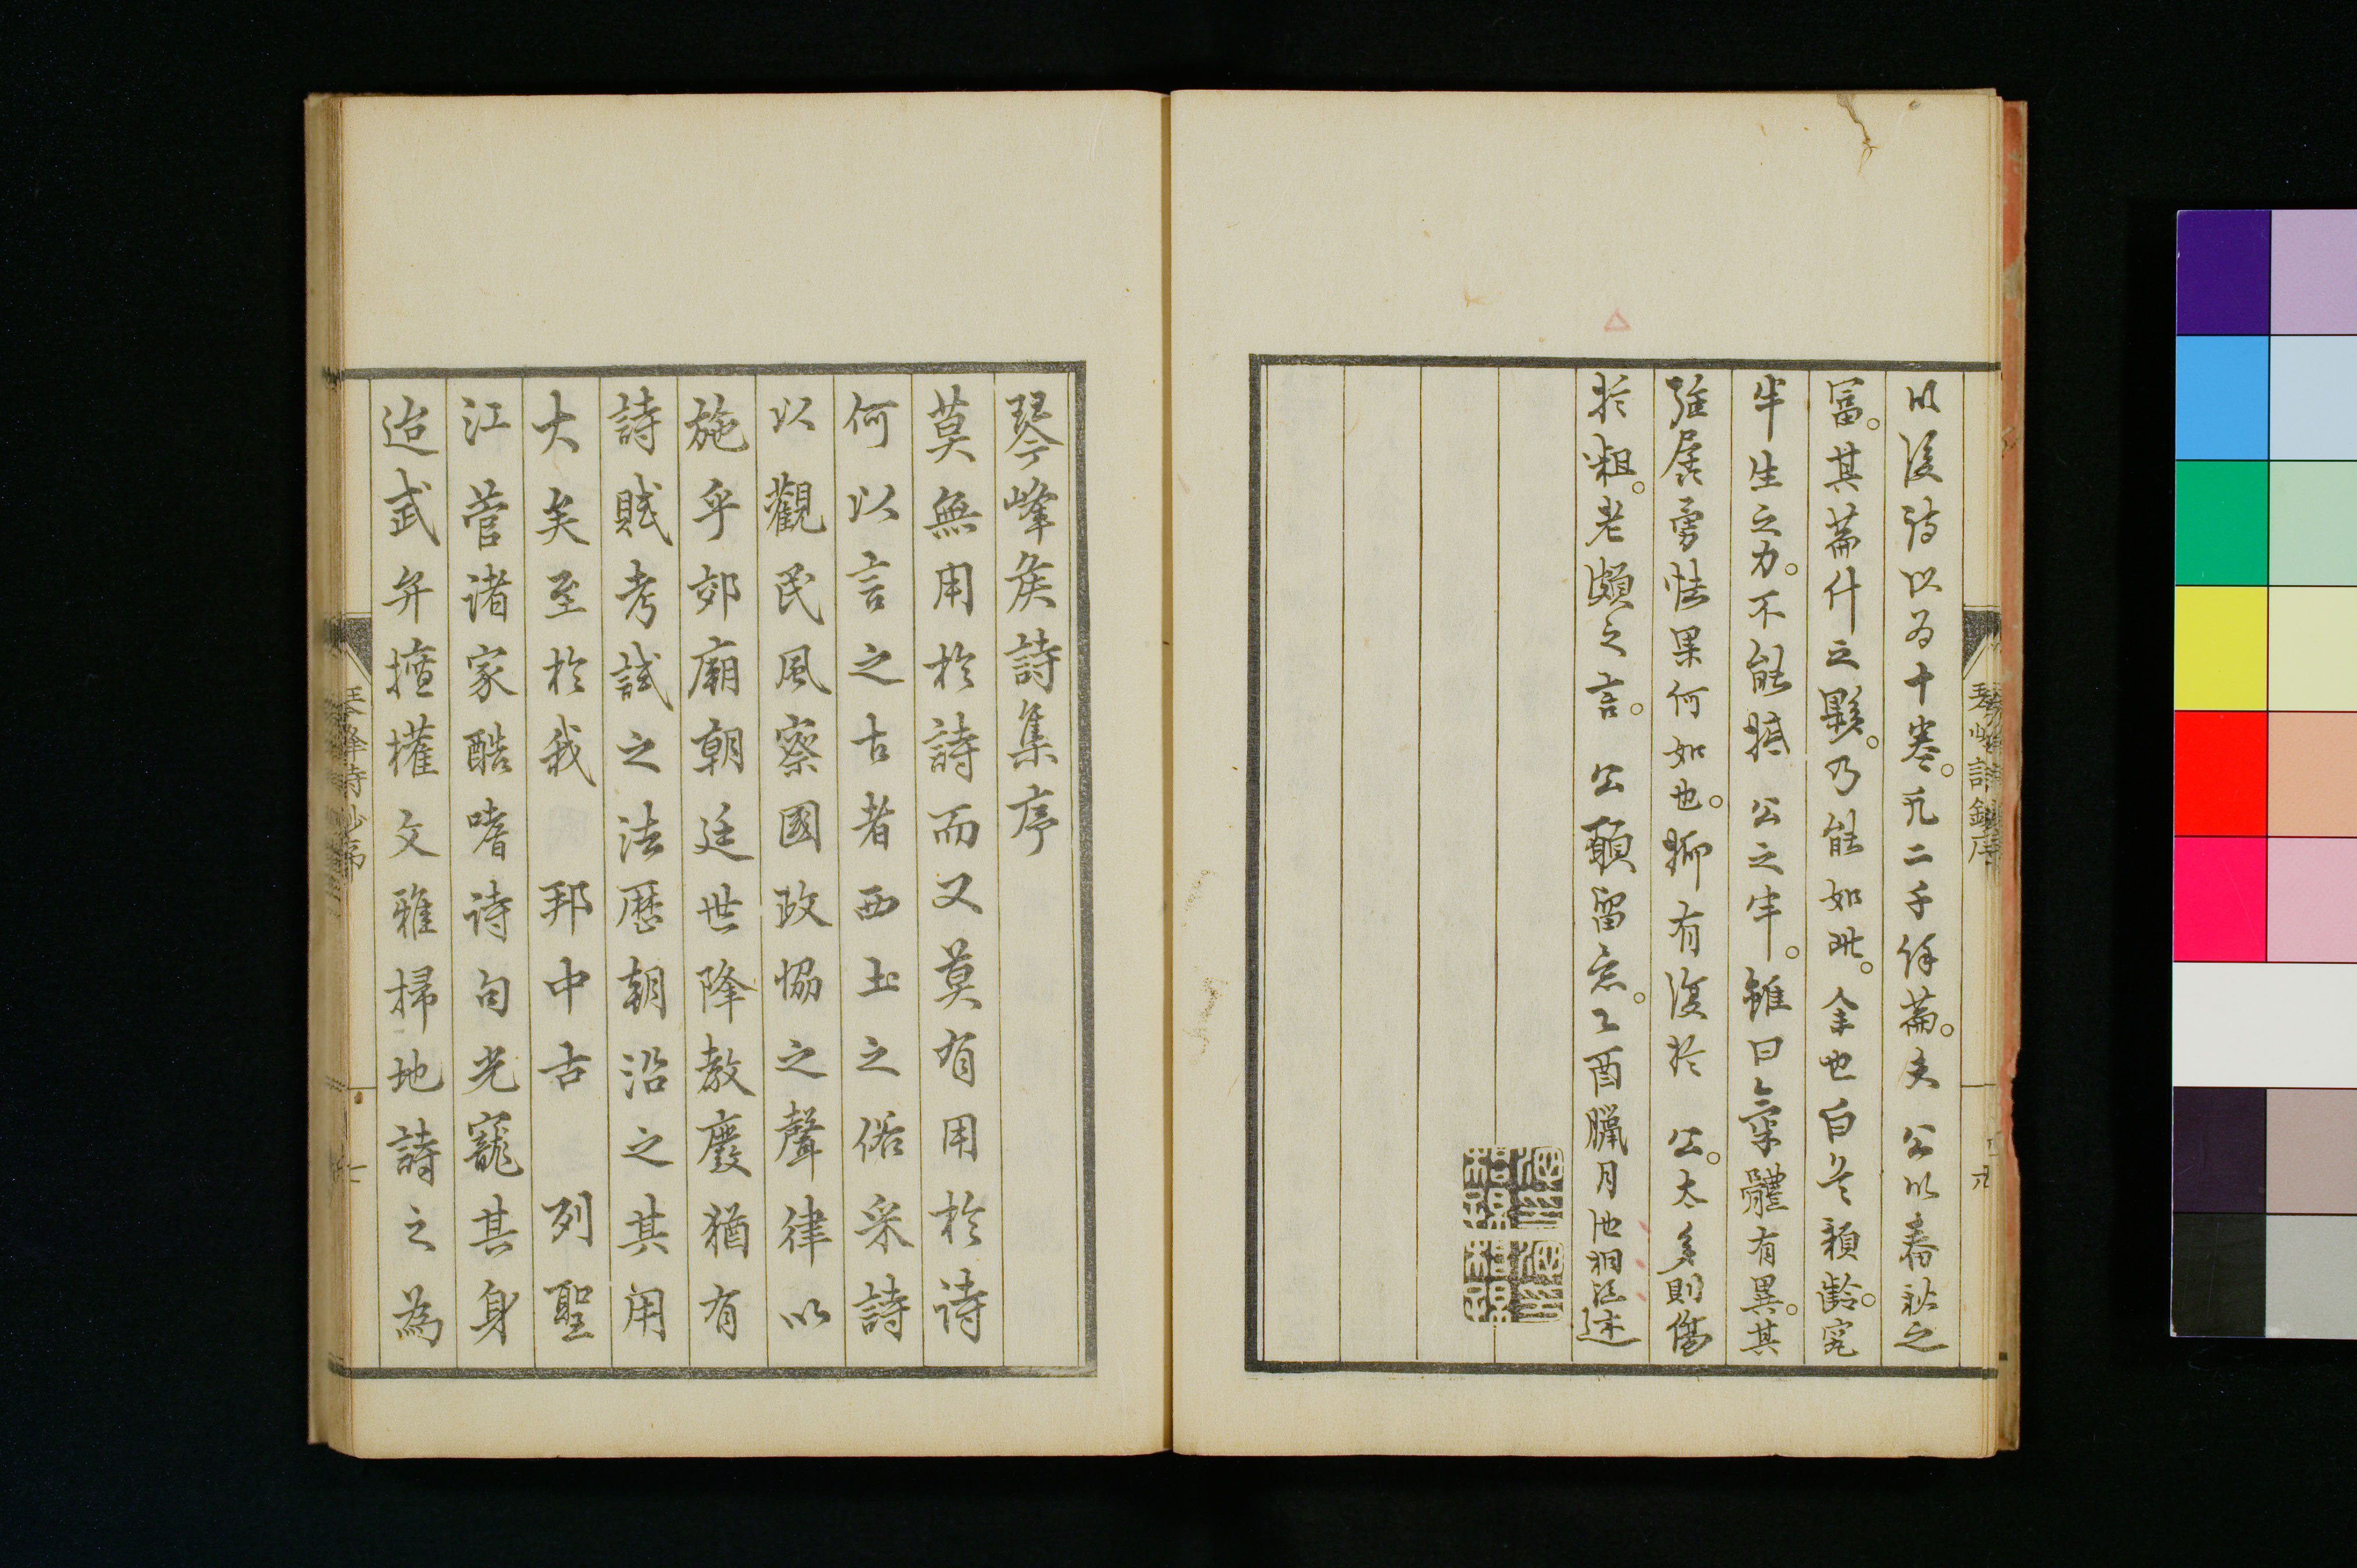 以後詩以為十卷。凡二千餘篇。夫 公以春秋之
富。其篇什之夥。乃能如此。余也白首頽齡。究
半生之力。不能攀 公之半。雖曰氣體有異。其
強孱勇怯果何如也。聊有復於 公。太多則傷
於粗。老頗之言。 公願留意。乙酉臘月池桐孫述
琴峰侯詩集序
莫無用於詩而又莫有用於詩
何以言之古者西土之俗采詩
以觀民風察國政協之聲律以
施乎郊廟朝廷世降教廢猶有
詩賦考試之法歴朝沿之其用
大矣至於我 邦中古 列聖
江菅諸家酷嗜詩句光寵其身
迨武弁擅權文雅掃地詩之為